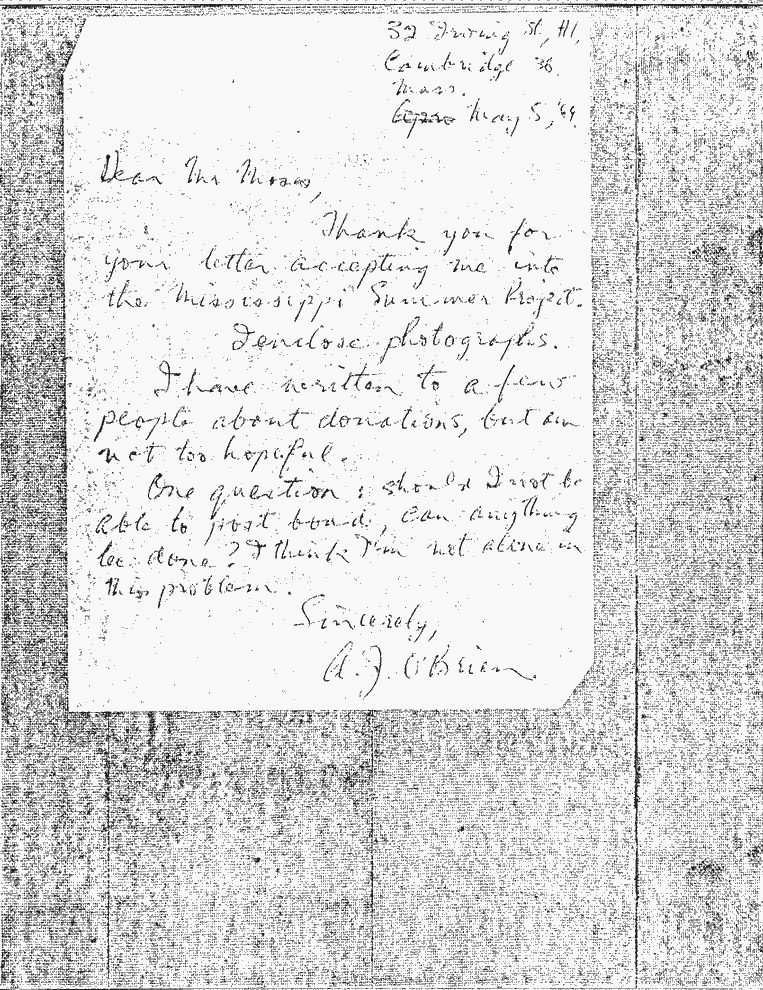 32 Irving St, #1,
Cambridge 38.
Mass.
May 5, '64.
Dear Mr Moses,
Thank you for
your letter accepting me into
the Mississippi Summer Project.
I enclose photographs.
I have written to a few
people about donations, but am
not too hopeful.
One question : should I not be
able to post bond, can anything
be done? I think I'm not alone in
this problem.
Sincerely,
A. J. O'Brien.